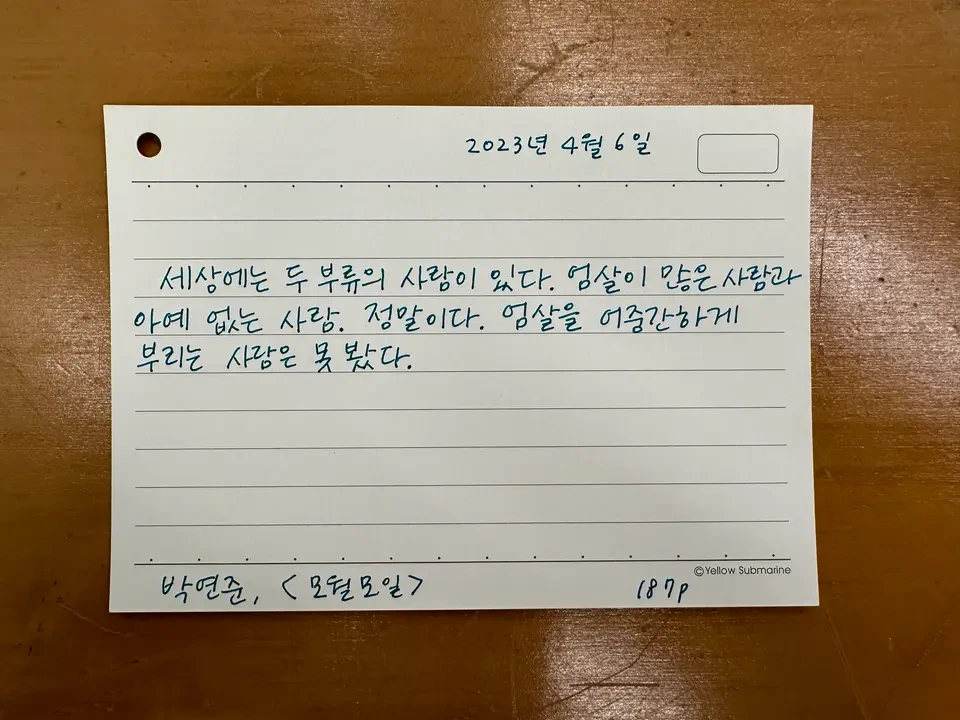 2023년 4월 6일
세상에는 두 부류의 사람이 있다. 엄살이 많은 사람과
아예 없는 사람. 정말이다. 엄살을 어중간하게
부리는 사람은 못 봤다.
©Yellow Submarine
박연준, <모월모일> 187p